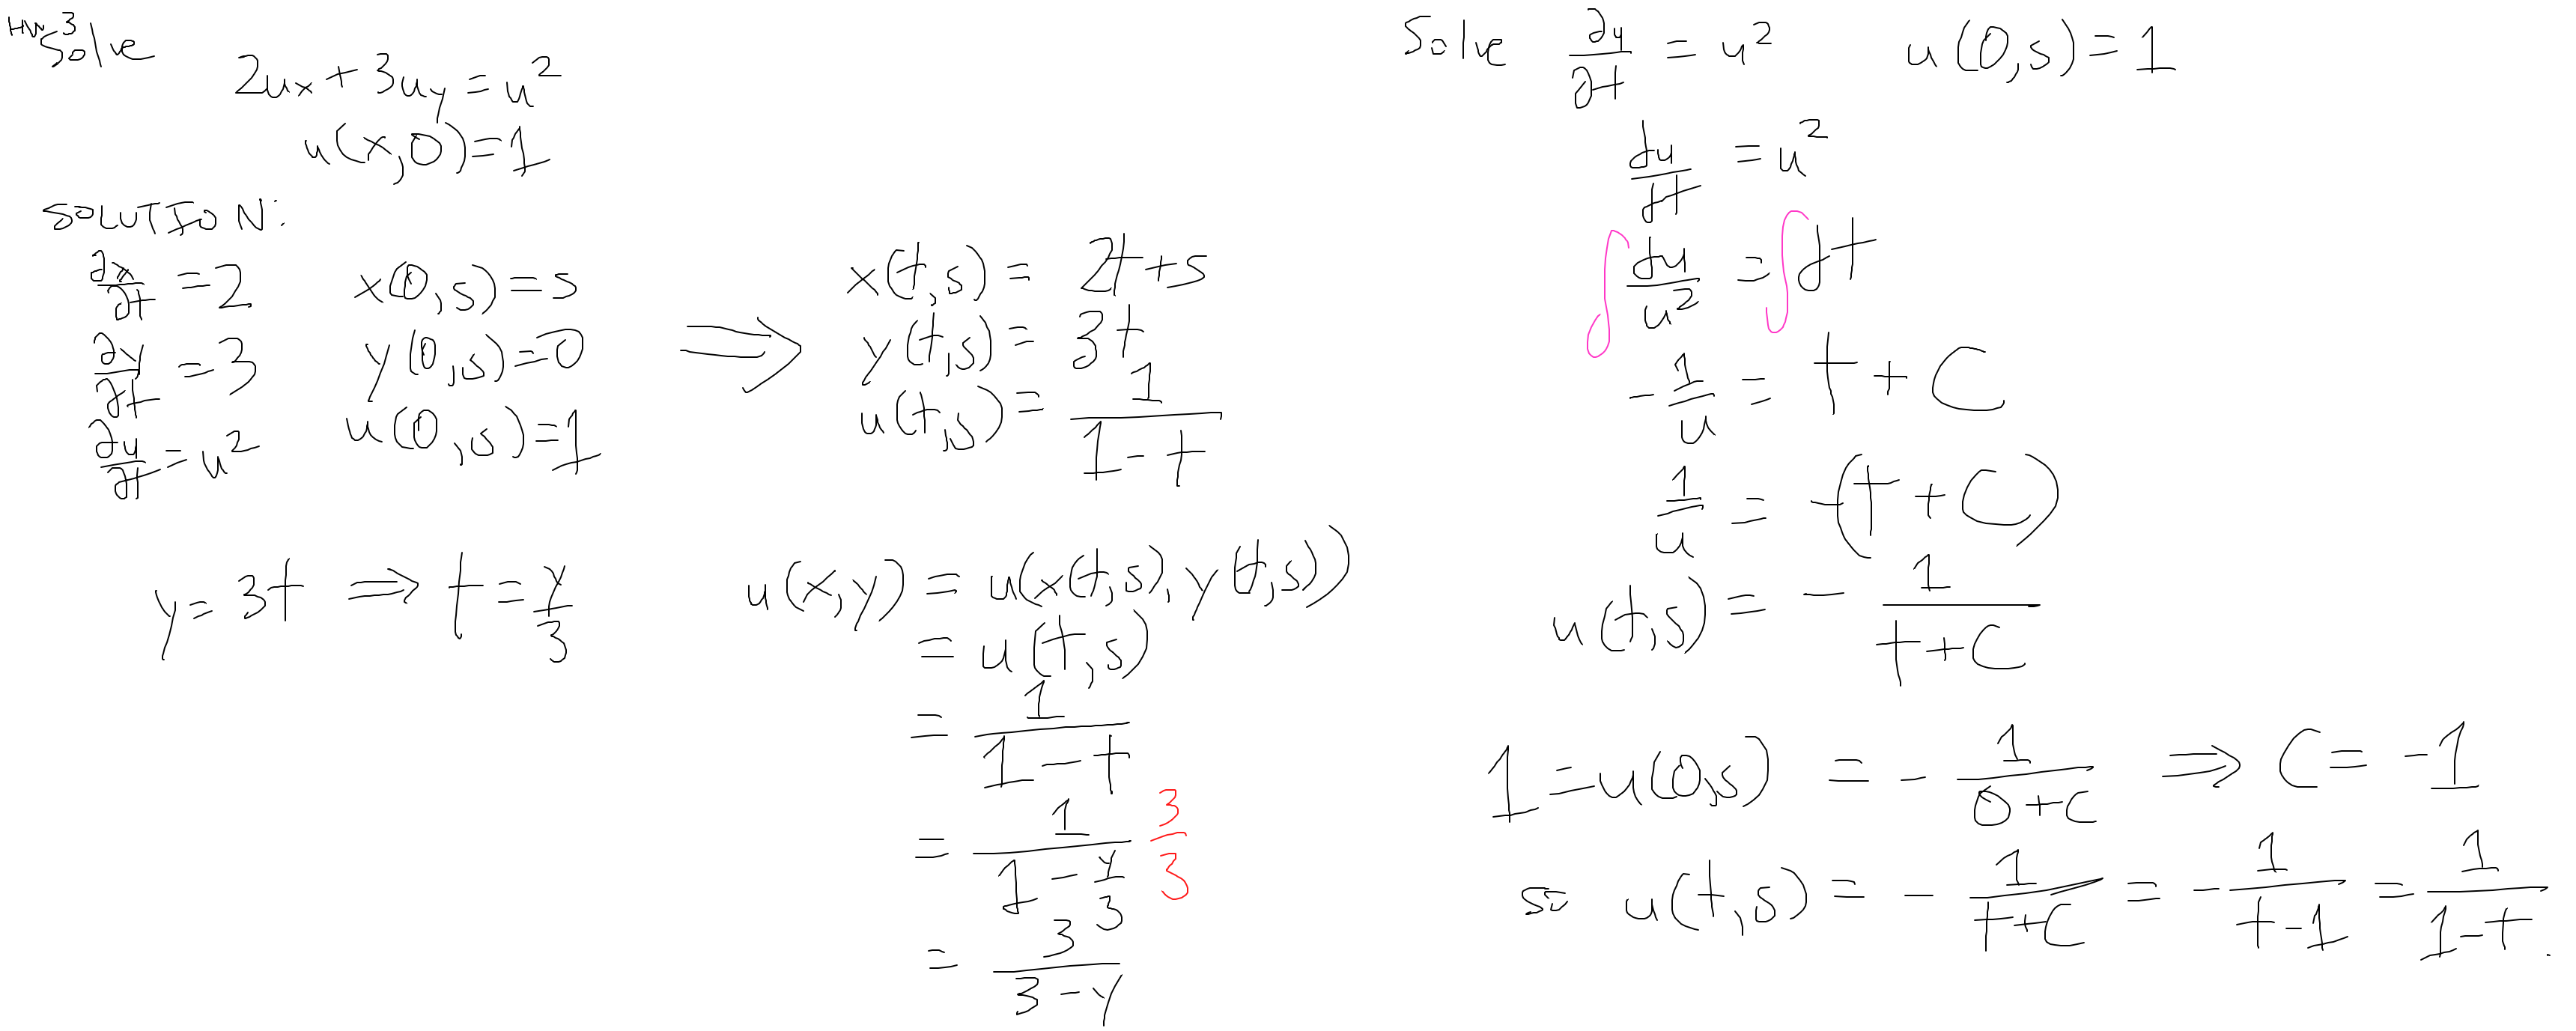 HW 3
Solve
2uₓ + 3u_y = u²
u(x,0) = 1
SOLUTION:
∂x/∂t = 2   x(0,s) = s   ⟹   x(t,s) = 2t + s
∂y/∂t = 3   y(0,s) = 0   y(t,s) = 3t
∂u/∂t = u²   u(0,s) = 1   u(t,s) = 1/(1-t)
y = 3t ⟹ t = y/3
u(x,y) = u(x(t,s), y(t,s))
= u(t,s)
= 1/(1-t)
= 1/(1 - y/3) 3/3
= 3/(3-y)
Solve ∂u/∂t = u²   u(0,s) = 1
du/dt = u²
∫ du/u² = ∫ dt
-1/u = t + C
1/u = -(t + C)
u(t,s) = - 1/(t+C)
1 = u(0,s) = - 1/(0+C) ⟹ C = -1
so u(t,s) = - 1/(t+C) = - 1/(t-1) = 1/(1-t).